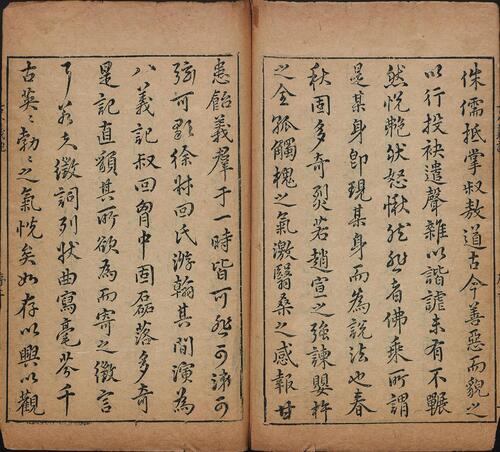 侏儒抵掌叔敖道古今善惡而貌之
以行投袂遣聲雜以諧謔未有不冁
然悅艴然怒愀然悲者佛乘所謂
是某身即現某身而為說法也春
秋固多奇烈若趙宣之強諫嬰杵
之全孤觸槐之氣激翳桑之感報甘
患飴義羣于一時皆可悲可涕可
弦可歌徐叔回氏游翰其間演為
八義記叔回胷中固磊落多奇
是記直額其所欲為而寄之徵言
了若夫徵詞列狀曲寫毫芥千
古英〻勃〻之氣恍矣如存以興以觀